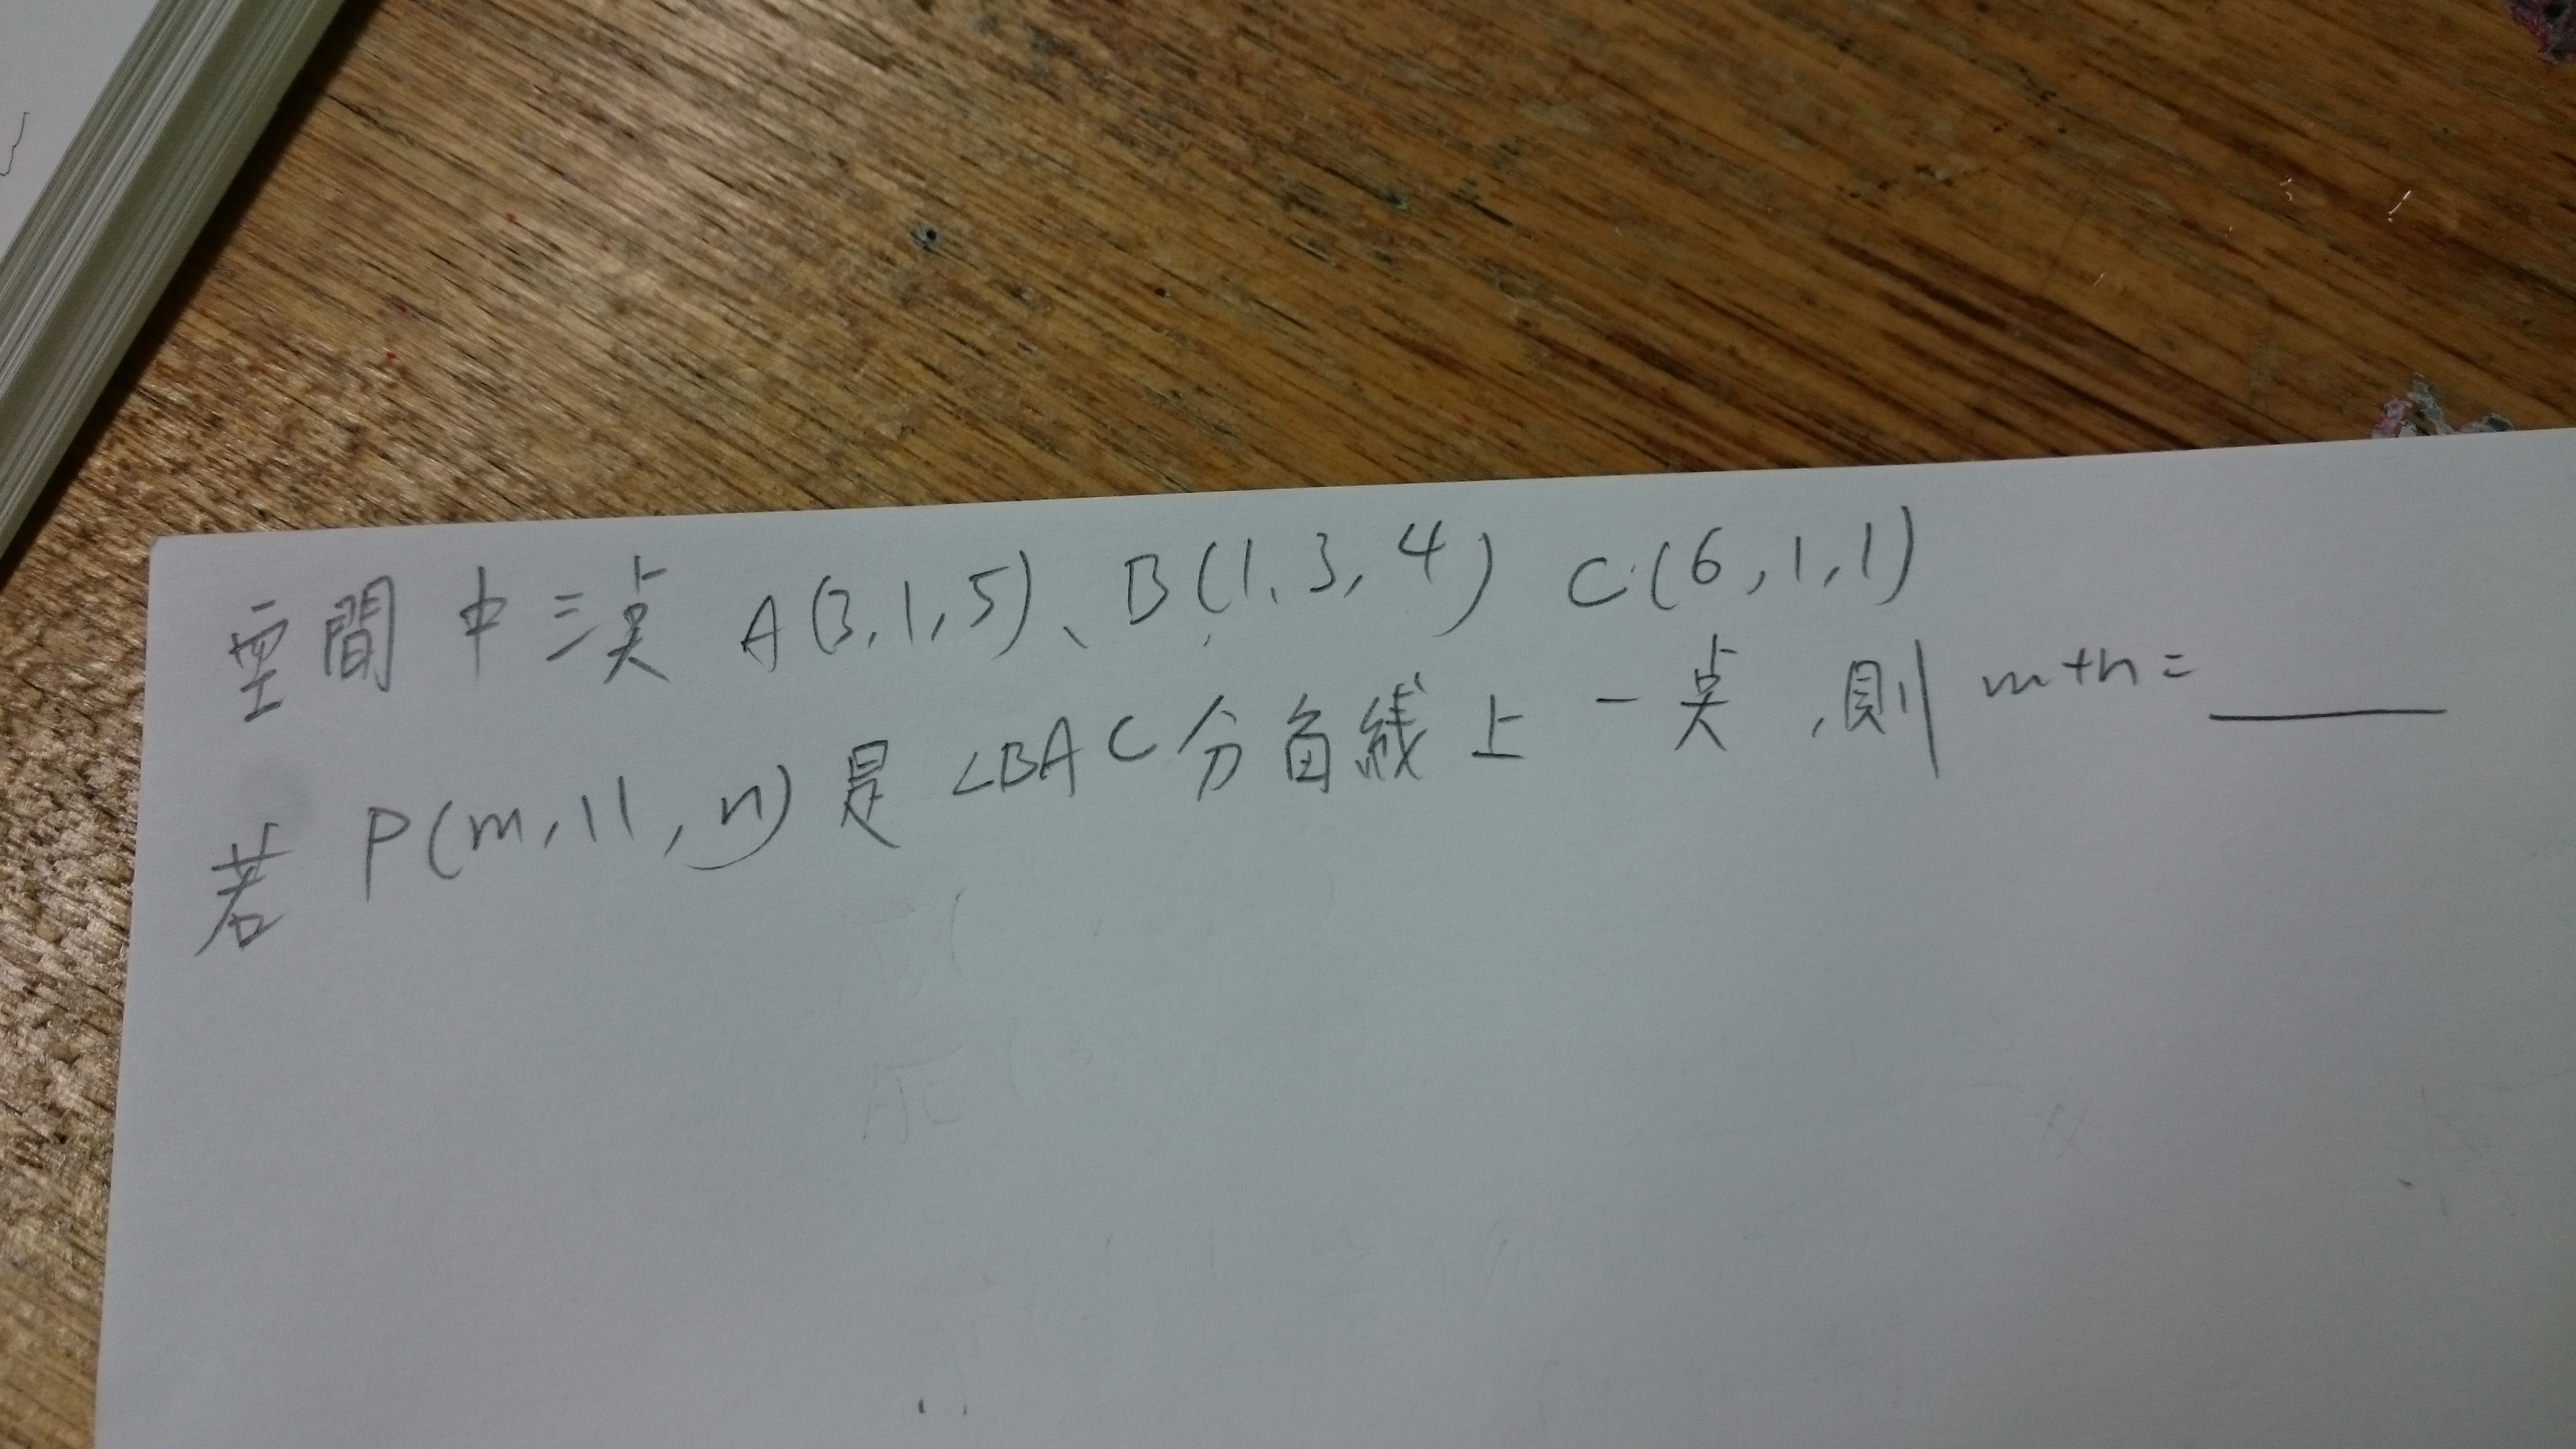 空間中三点 A(3,1,5)、B(1,3,4) C(6,1,1)
若 P(m,11,n)是∠BAC分角線上一点,則 m+n=